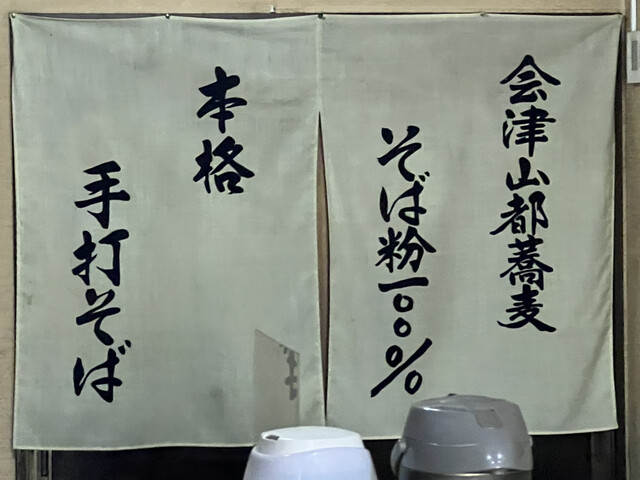 会津山都蕎麦
そば粉一〇〇%
本格
手打そば